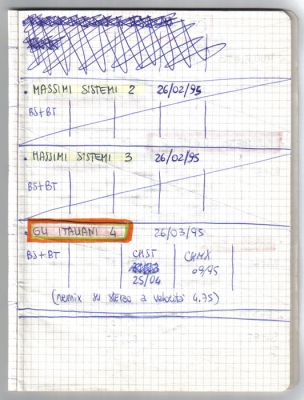 • MASSIMI SISTEMI 2 26/02/95
BS+BT
• MASSIMI SISTEMI 3 26/02/95
BS+BT
• GLI ITALIANI 4 26/03/95
BS+BT CMST CHMX
25/04 09/95
(remix su stereo a velocità 4.75)